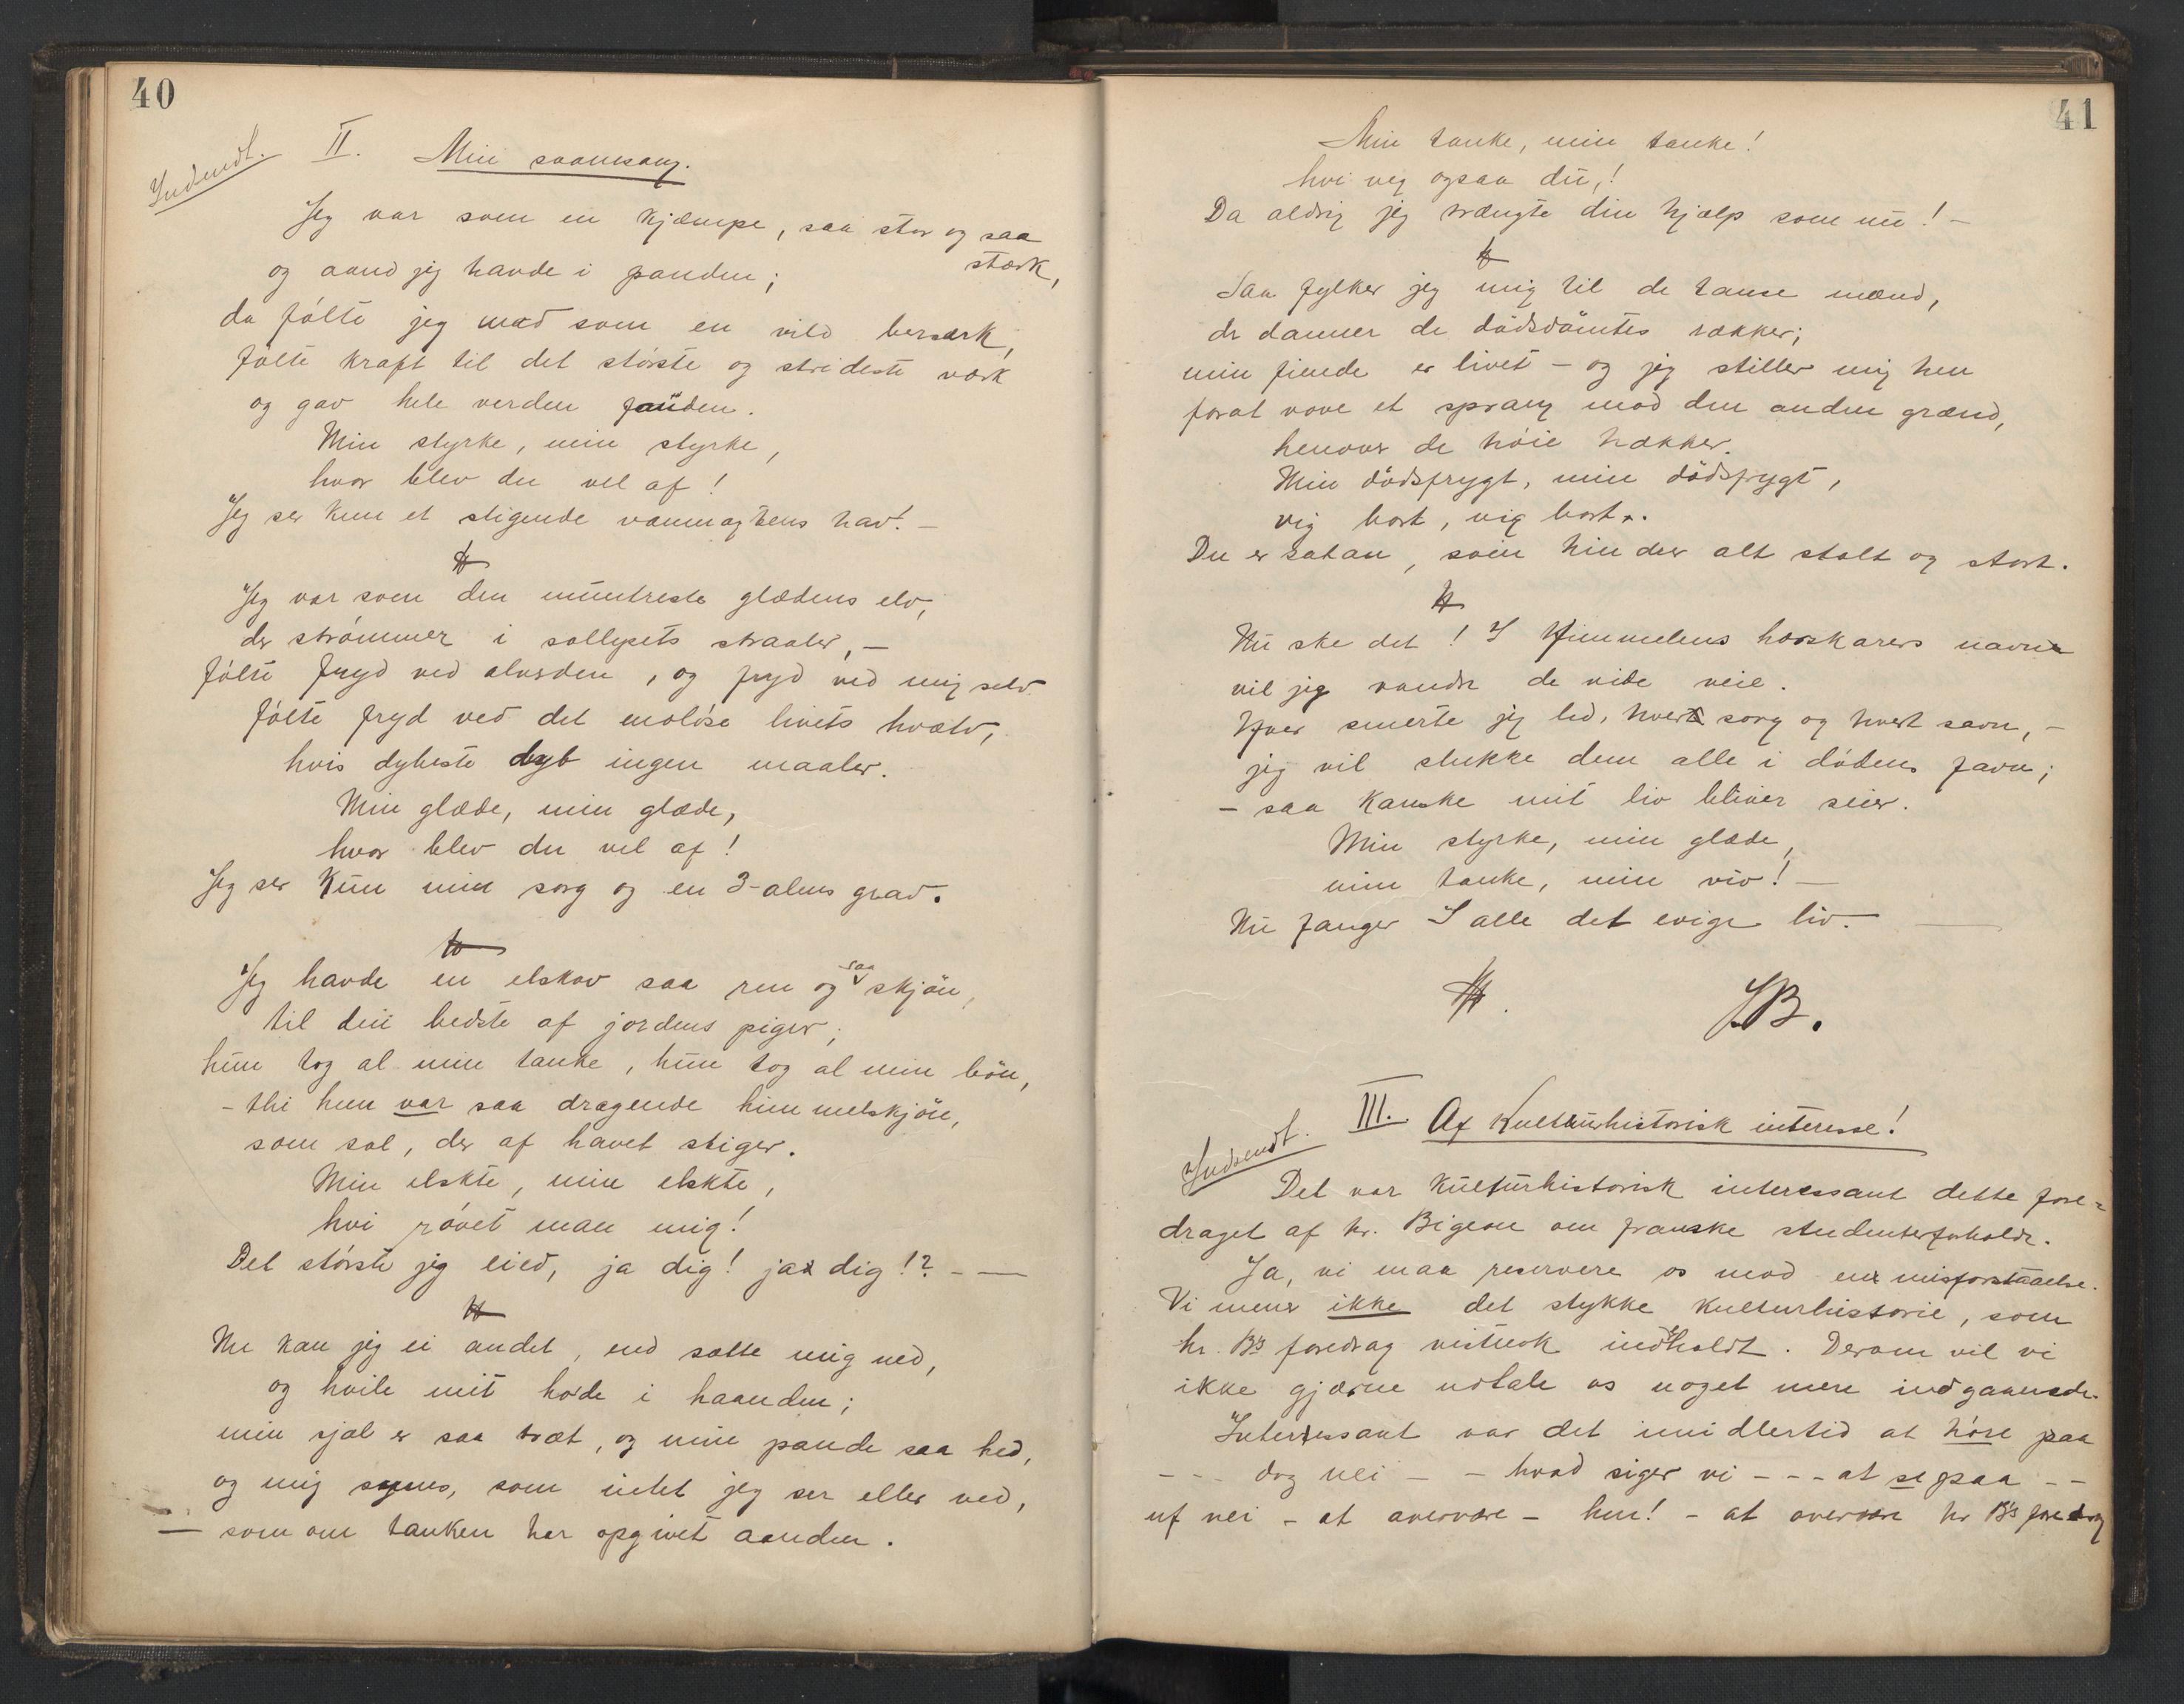 40
Indsendt.
II. Min svanesang.
Jeg var som en kjæmpe, saa stor og saa
stærk,
og aand jeg havde i panden;
da følte jeg mod som en vild berserk,
følte kraft til det største og strideste værk
og gav hele verden fanden.
Min styrke, min styrke,
hvor blev du vel af!
Jeg ser kun et stigende vanmagtens hav. –
Jeg var som den muntreste glædens elv,
der strømmer i sollysets straaler, –
følte fryd ved alverden, og fryd ved mig selv
følte fryd ved det endløse livets hvælv,
hvis dybeste dyb ingen maaler.
Min glæde, min glæde,
hvor blev du vel af!
Jeg ser kun min sorg og en 3-alens grav.
Jeg havde en elskov saa ren og saa skjøn,
til den bedste af jordens piger;
hun tog al min tanke, hun tog al min bøn,
– thi hun var saa dragende himmelskjøn,
som sol, der af havet stiger.
Min elskte, min elskte,
hvi røvet man mig!
Det største jeg eied, ja dig! ja dig!? – —
Nu kan jeg ei andet, end sætte mig ned,
og hvile mit hode i haanden;
min sjæl er saa træt, og min pande saa hed,
og mig synes, som intet jeg ser eller ved,
— som om tanken har opgivet aanden.
41
Min tanke, min tanke!
hvi veg ogsaa du,!
Da aldrig jeg trængte din hjælp som nu! –
Saa fylker jeg mig til de tause mænd,
der danner de dødsdømtes rækker;
min fiende er livet – og jeg stiller mig hen
forat vove et sprang mod den anden grænd,
henover de høie hækker.
Min dødsfrygt, min dødsfrygt,
vig bort, vig bort.
Du er satan, som hindrer alt stolt og stort.
Nu ske det! I Himmelens hærskarers navn
vil jeg vandre de vide veie.
Hver smerte jeg led, hver sorg og hvert savn, –
jeg vil slukke dem alle i dødens favn;
– saa kanske mit liv bliver seier.
Min styrke, min glæde,
min tanke, min viv! —
Nu fanger I alle det evige liv. —
J.B.
Indsendt.
III. Af Kulturhistorisk interesse!
Det var kulturhistorisk interessant dette fore-
draget af hr. Bigeon om franske studenterforholde.
Ja, vi maa reservere os mod en misforstaaelse.
Vi mener ikke det stykke kulturhistorie, som
hr. B's foredrag vistnok indeholdt. Derom vil vi
ikke gjærne udtale os noget mere indgaaende.
Interessant var det imidlertid at høre paa
– – – dog nei – – hvad siger vi – – – at se paa – –
uf nei – at overvære – hm! – at overvære hr B's foredrag